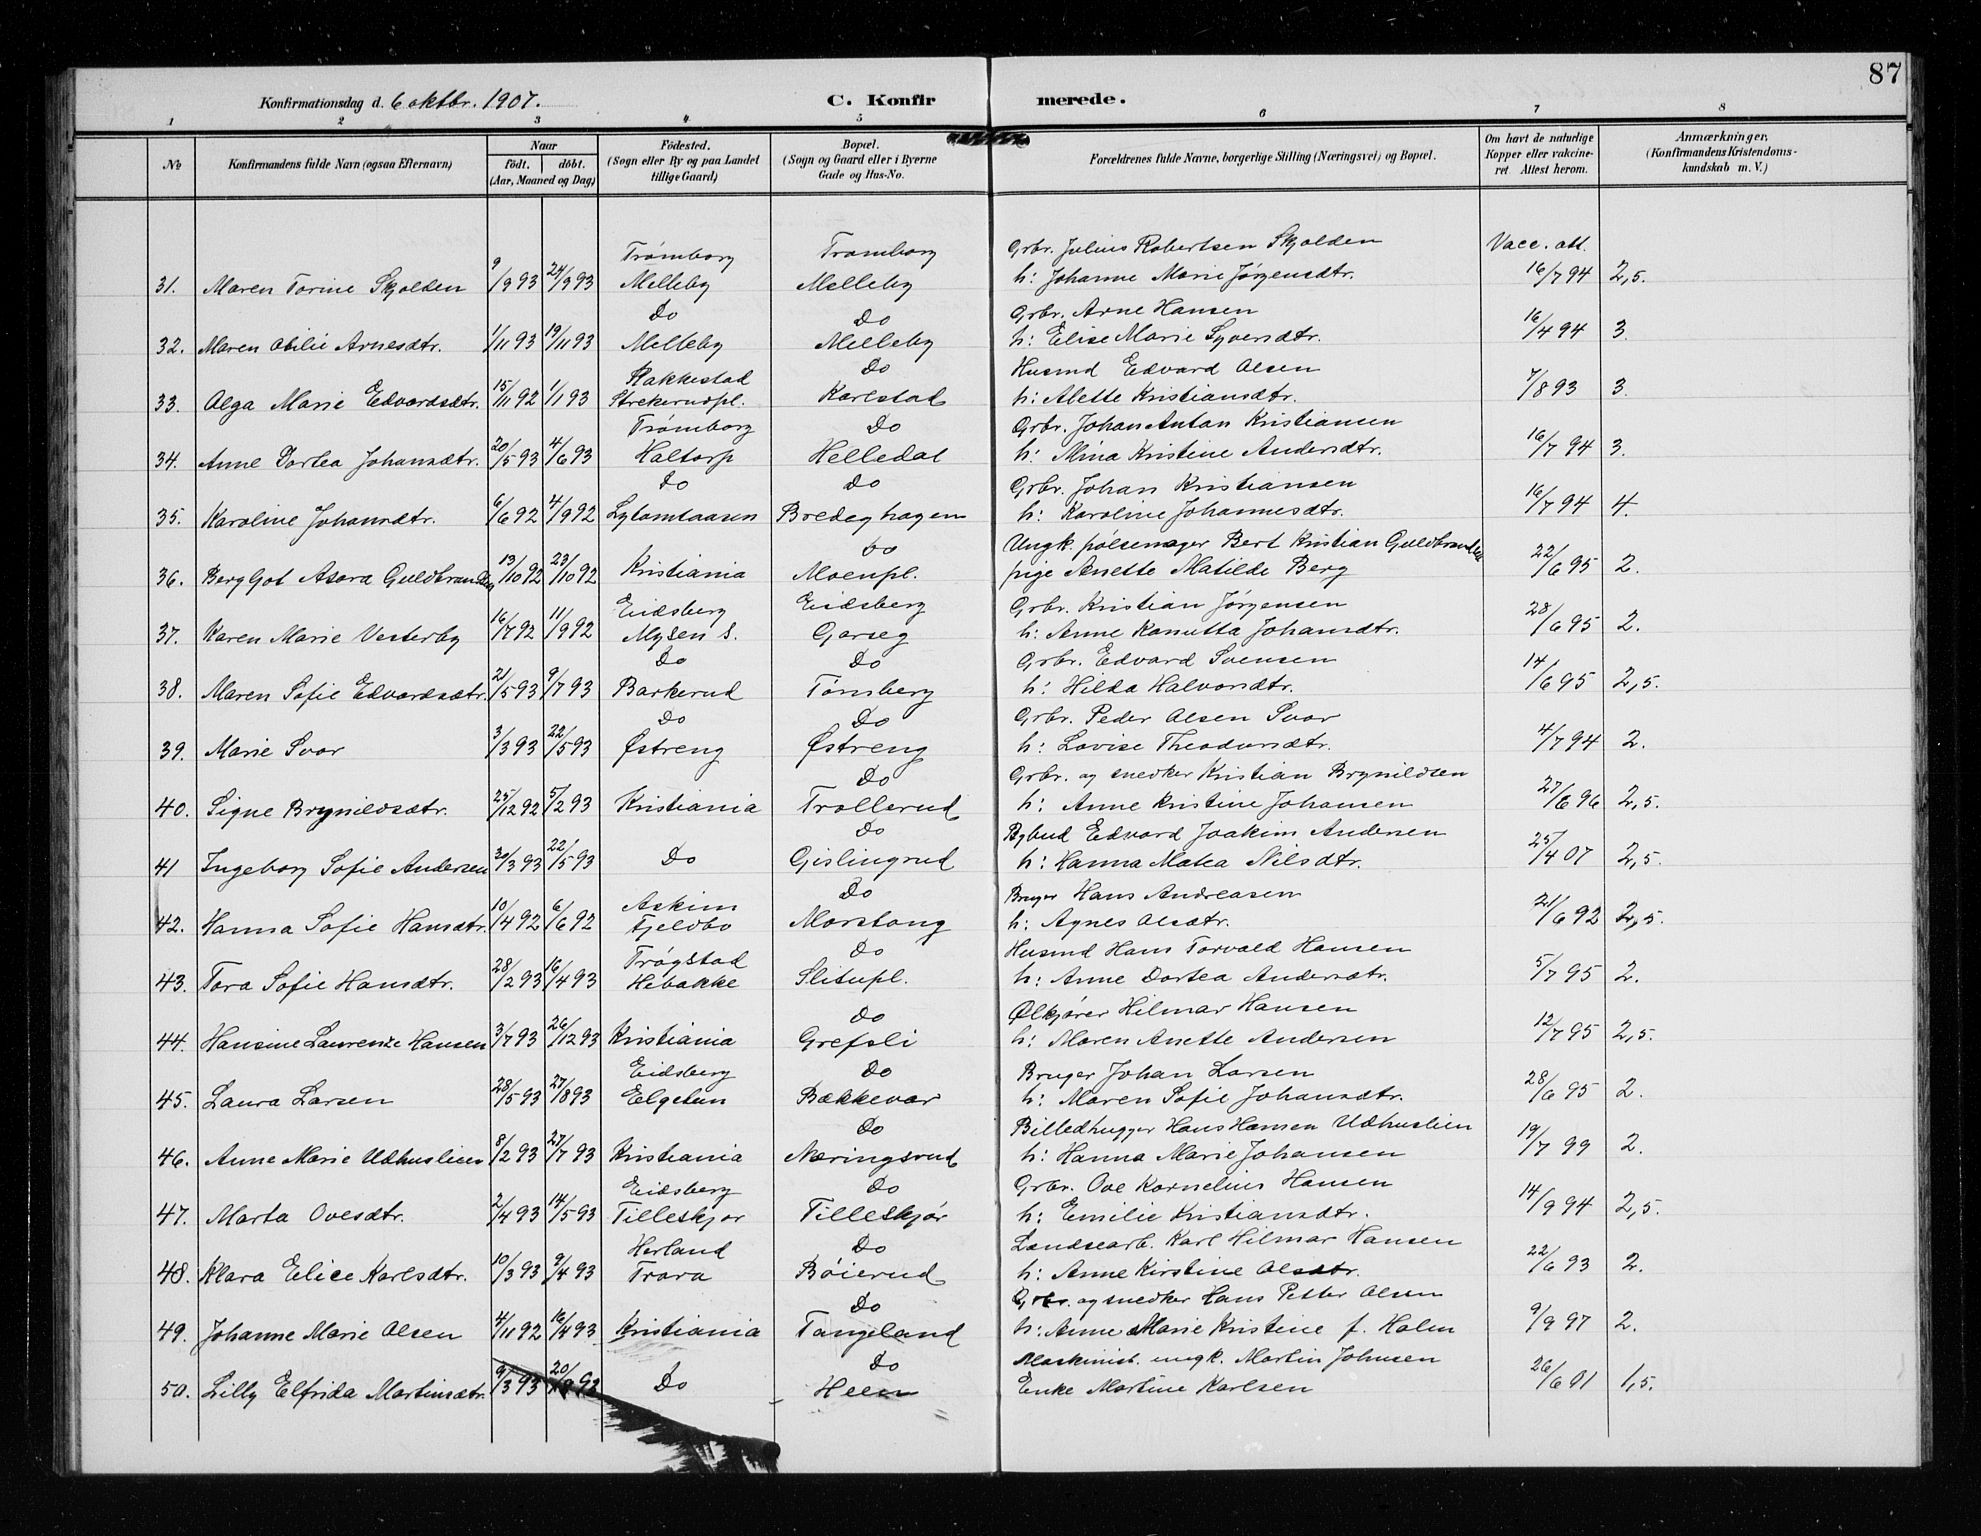 87
Konfirmationsdag d. 6 oktbr. 1907. C. Konfirmerede.
1 2 3 4 5 6 7 8
No Konfirmandens fulde Navn (ogsaa Efternavn) Naar födt. döbt. (Aar, Maaned og Dag) Födested. (Sogn eller By og paa Landet tillige Gaard) Bopæl. (Sogn og Gaard eller i Byerne Gade og Hus-No. Forældrenes fulde Navne, borgerlige Stilling (Næringsvei) og Bopæl. Om havt de naturlige Kopper eller vakcineret Attest herom. Anmærkninger. (Konfirmandens Kristendomskundskab m. V.)
Trømborg Tromborg Grbr. Julius Robertsen Skjolden Vacc. att.
31. Maren Torine Skjolden 9/9 93 24/9 93 Melleby Melleby h: Johanne Marie Jørgensdtr. 16/7 94 2,5.
Do Do Grbr. Arne Hansen
32. Maren Otilie Arnesdtr. 1/11 93 19/11 93 Melleby Melleby h: Elise Marie Syversdtr. 16/4 94 3.
Rakkestad Do Husmd Edvard Olsen
33. Olga Marie Edvardsdtr. 15/11 92 1/1 93 Strekerudpl. Karlstad h: Alette Kristiansdtr. 7/8 93 3.
Trømborg Do Grbr. Johan Anton Kristiansen
34. Anne Dortea Johansdtr. 20/5 93 4/6 93 Haltorp Helledal h: Mina Kristine Andersdtr. 16/7 94 3.
Do Do Grbr. Johan Kristiansen
35. Karoline Johansdtr. 6/6 92 4/9 92 Bredeghagen h: Karoline Johannesdtr. 16/7 94 4.
Do Ungk. pølsemager Bert Kristian Guldbrandsen
36. Bergljot Asora Guldbrandsen 13/10 92 23/10 92 Kristiania Moenpl. pige Anette Matilde Berg 22/6 95 2.
Eidsberg Eidsberg Grbr. Kristian Jørgensen
37. Karen Marie Vesterby 16/7 92 11/9 92 Mysen s. Garseg h: Anne Kanutta Johansdtr. 28/6 95 2.
Do Do Grbr. Edvard Svensen
38. Maren Sofie Edvardsdtr. 21/5 93 9/7 93 Barkerud Tømberg h: Hilda Halvorsdtr. 14/6 95 2,5.
Do Do Grbr. Peder Olsen Svor
39. Marie Svor 3/3 93 22/5 93 Østreng Østreng h: Lovise Theodorsdtr. 4/7 94 2.
Do Grbr. og snedker Kristian Brynildsen
40. Signe Brynildsdtr. 25/12 92 5/2 93 Kristiania Trollerud h: Anne Kristine Johansen 27/6 96 2,5.
Do Bybud Edvard Joakim Andersen
41 Ingeborg Sofie Andersen 30/3 93 22/5 93 Do Gislingrud h: Hanna Matea Nilsdtr. 25/4 07 2,5.
Askim Do Bruger Hans Andreasen
42. Hanna Sofie Hansdtr. 10/4 92 6/6 92 Fjeldbo Morstong h: Agnes Olsdtr. 21/6 92 2,5.
Trøgstad Do Husmd Hans Torvald Hansen
43. Tora Sofie Hansdtr. 28/2 93 16/4 93 Hebakke Slitupl. h: Anne Dortea Andersdtr. 5/7 95 2.
Do Ølkjører Hilmar Hansen
44. Hansine Laurenze Hansen 3/7 93 26/12 93 Kristiania Grefsli h: Maren Anette Andersen 12/7 95 2,5.
Eidsberg Do Bruger Johan Larsen
45. Laura Larsen 28/5 93 27/8 93 Elgetun Bækkevar h: Maren Sofie Johansdtr. 28/6 95 2.
Do Billedhugger Hans Hansen Udhuslien
46. Anne Marie Udhuslien 8/2 93 27/7 93 Kristiania Næringsrud h: Hanna Marie Johansen 19/7 99 2.
Eidsberg Do Grbr. Ove Kornelius Hansen
47. Marta Ovesdtr. 2/4 93 14/5 93 Tilleskjor Tilleskjør h: Emilie Kristiansdtr. 14/9 94 2,5.
Herland Do Landsearb. Karl Hilmar Hansen
48. Klara Elise Karlsdtr. 10/3 93 9/4 93 Trara Bøierud h: Anne Kirstine Olsdtr. 22/6 93 2.
Do Grbr. og snedker Hans Petter Olsen
49. Johanne Marie Olsen 4/11 92 16/4 93 Kristiania Tangeland h: Anne Marie Kristene f. Holm 9/9 97 2.
Do Maskinist. ungk. Martin Johnsen
50. Lilly Elfrida Martinsdtr. 9/3 93 20/8 93 Do Heen Enke Martine Karlsen 26/6 01 1,5.